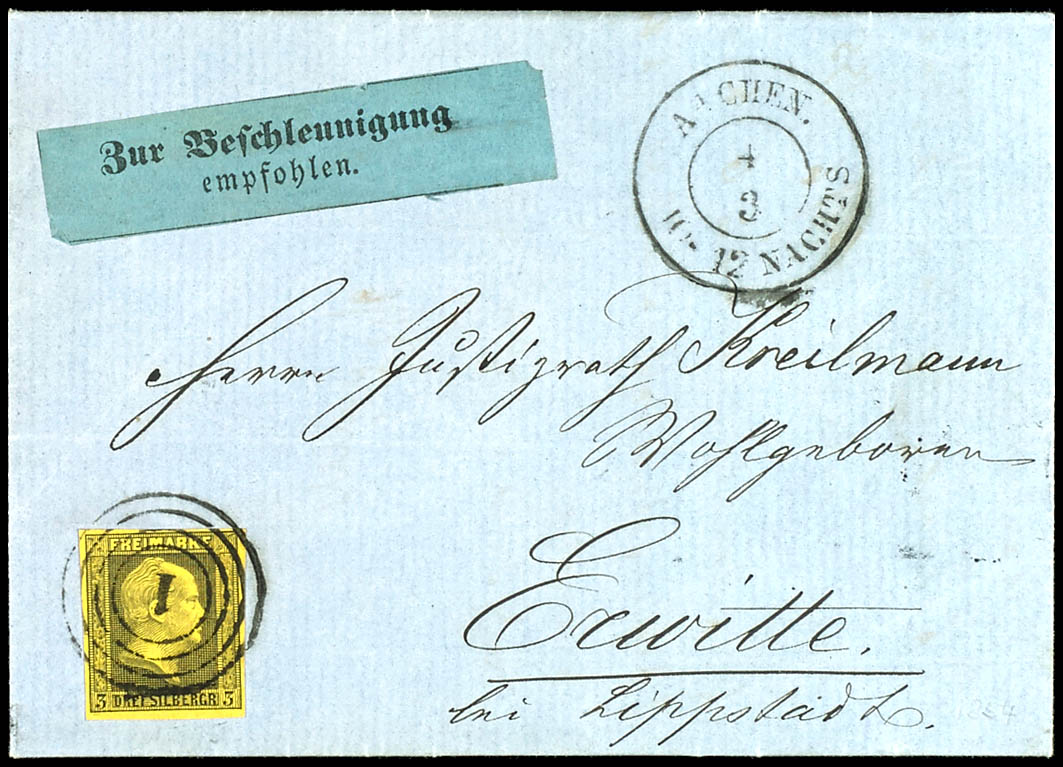 Zur Beschleunigung
empfohlen.
AACHEN.
4
3
10-12 NACHTS
Herrn Justizrath Kreilmann
Wohlgeboren
Erwitte.
bei Lippstadt.
FREIMARKE
1
3 DREI SILBERGR 3